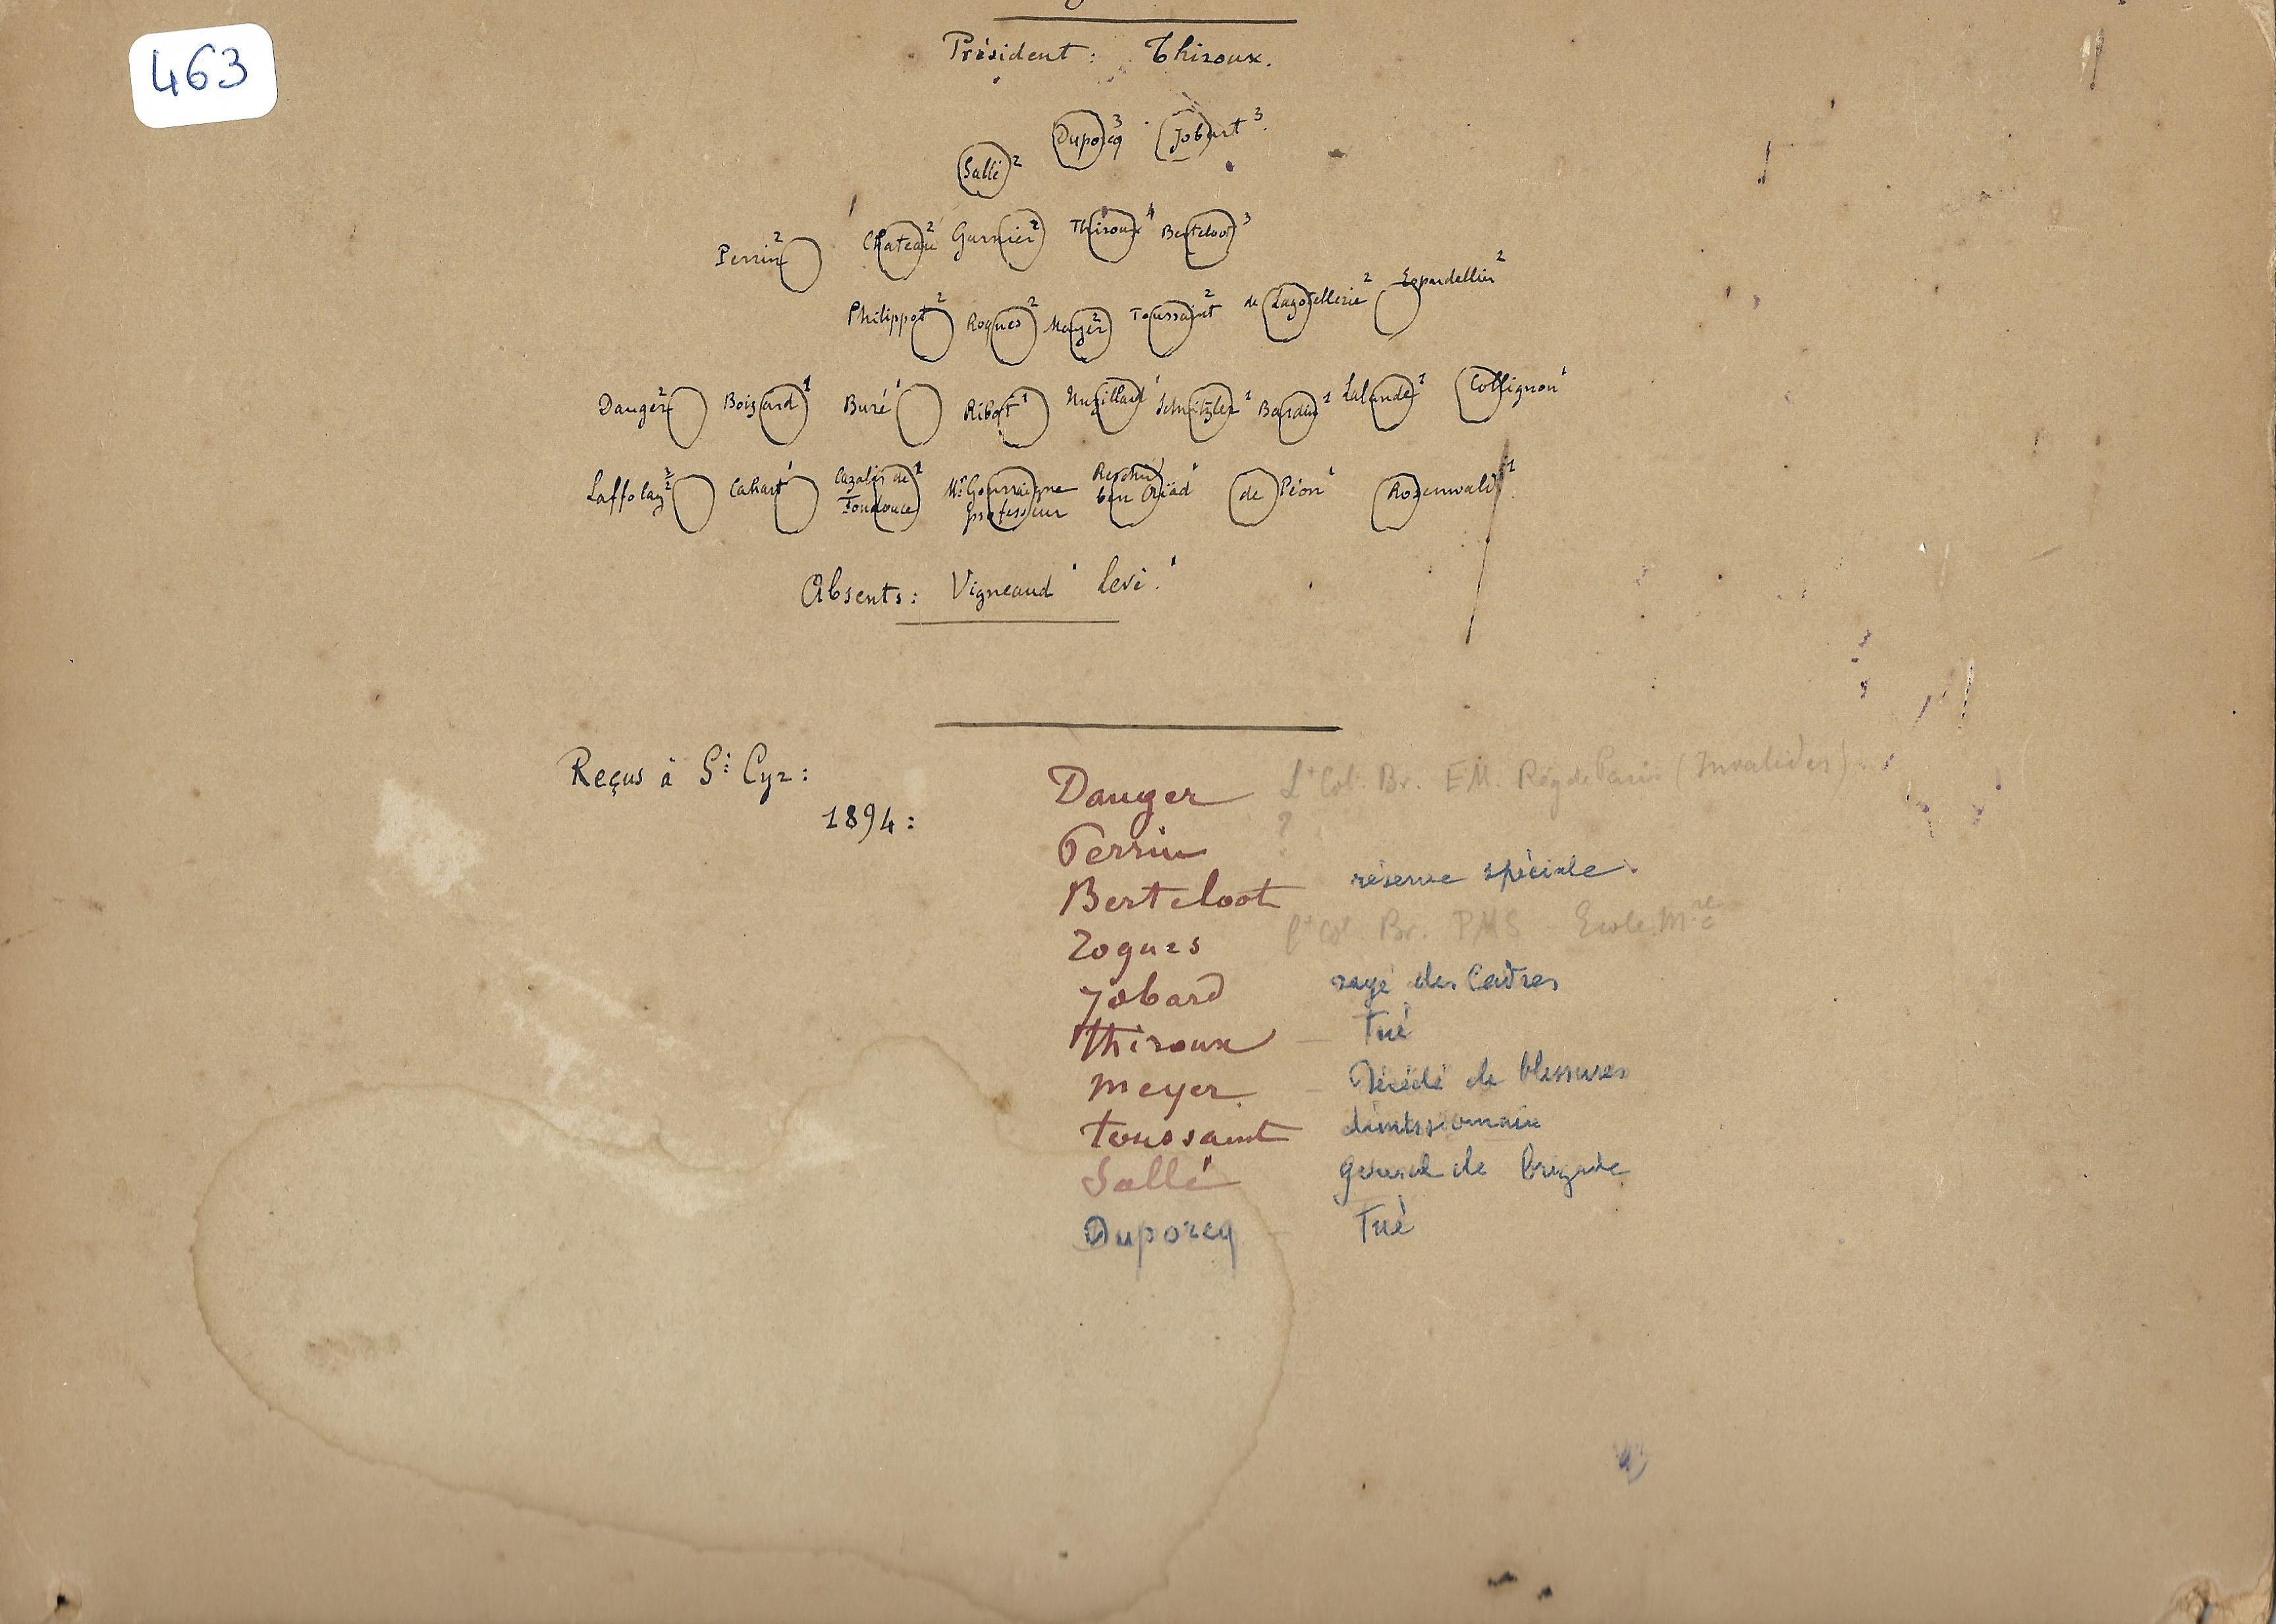 463
Président : Thiroux.
Duporcq 3 Jobart 3.
Sallé 2
Perrin 2 Chateau 2 Garnier 2 Thiroux 4 Berteloot 3
Philippot 2 Roques 2 Meyer 2 Toussaint 2 de Lagotellerie 2 Espardellier 2
Danger 2 Boizard 1 Buré 1 Ribot 1 Nuzillard 1 Schnitzler 1 Bardin 1 Lalande 1 Collignon 1
Laffolay Cahart 1 Cazalis de Fondouce 1 Mr. Gourraigne professeur ben 1 de Péon 1 Rozenwald 1
Absents : Vigneaud 1 Levi. 1
Reçus à St Cyr :
1894 :
Danger Lt Col. Br. EM. Rég de Paris (Invalides)
Perrin ?
Berteloot réserve spéciale.
Rogues Lt Col. Br. PMS Ecole Mre
Jobard rayé des Cadres
Thiroux – Tué
Meyer – Décédé de blessures
Toussaint démissionnaire
Sallé général de brigade
Duporcq – Tué